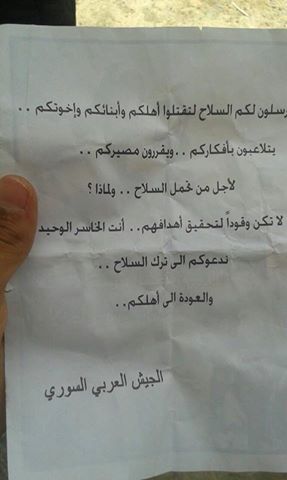 يرسلون لكم السلاح لتقتلوا أهلكم وأبنائكم وإخوتكم . .
يتلاعبون بأفكاركم . . ويقررون مصيركم . .
لأجل من تحمل السلاح . . ولماذا ؟
لا تكن وقوداً لتحقيق أهدافهم . . أنت الخاسر الوحيد
ندعوكم الى ترك السلاح . .
والعودة الى أهلكم . .
الجيش العربي السوري